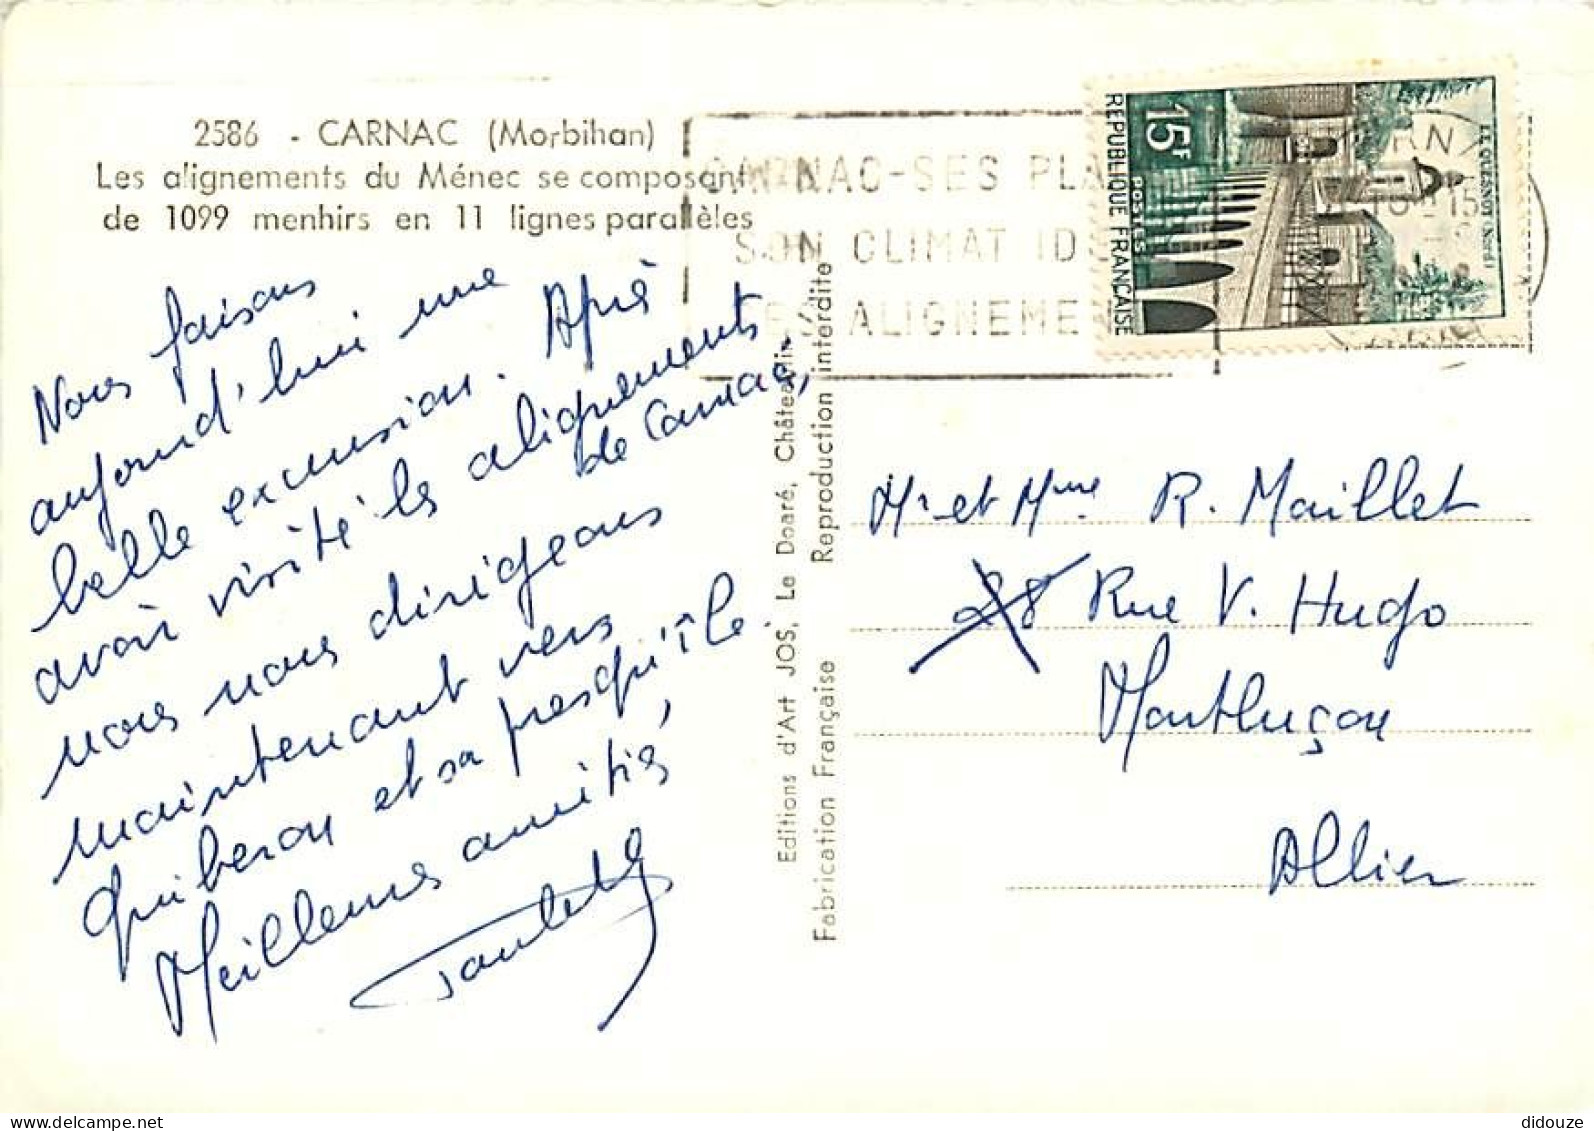 2586 - CARNAC (Morbihan)
Les alignements du Ménec se composant
de 1099 menhirs en 11 lignes parallèles
Nous faisons
aujourd'hui une
belle excursion. Après
avoir visité les alignements
de Carnac,
nous nous dirigeons
maintenant vers
Quiberon et sa presqu'île.
Meilleures amitiés,
Editions d'Art JOS, Le Doaré, Châteaulin
Fabrication Française Reproduction interdite
CARNAC-SES PLA
SON CLIMAT IDE
SES ALIGNEME
15F
REPUBLIQUE FRANÇAISE
POSTES
LE QUESNOY (Nord)
Mr et Mme R. Maillet
28 Rue V. Hugo
Montluçon
Allier
didouze